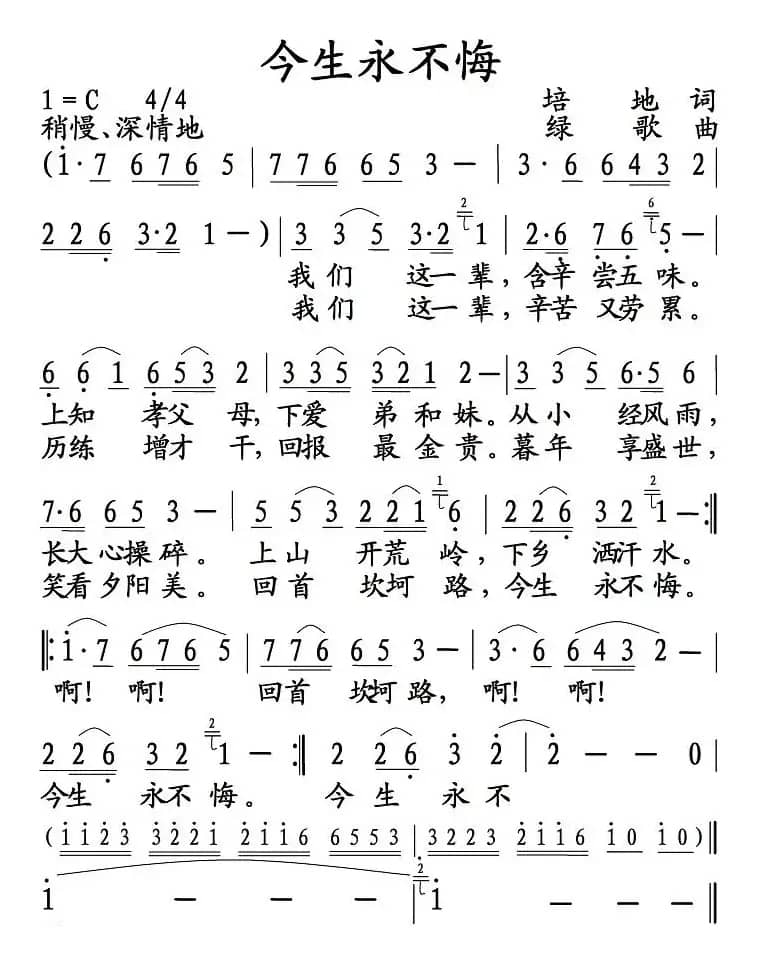 今生永不悔
1 = C 4/4 培 地 词
稍慢、深情地 绿 歌 曲
(i̇·7 6765 | 776 653 — | 3·6 6432 |
226 3·21 — ) | 3 35 3·2 ²1 | 2·6 76 ⁶5 — |
我们 这一辈，含辛 尝五味。
我们 这一辈，辛苦 又劳累。
6 61 6532 | 335 3212 — | 3 35 6·56 |
上知 孝父 母，下爱 弟和妹。从小 经风雨，
历练 增才 干，回报 最金贵。暮年 享盛世，
7·6 653 — | 5 53 221 ¹6 | 226 32 ²1 — :‖
长大心操碎。上山 开荒岭，下乡 洒汗水。
笑看夕阳美。回首 坎坷路，今生 永不悔。
‖: i̇·7 6765 | 776 653 — | 3·6 6432 — |
啊！ 啊！ 回首 坎坷路， 啊！ 啊！
226 32 ²1 — :‖ 2 26 3̇ 2̇ | 2̇ — — 0 |
今生 永不悔。 今生 永不
( i̇i̇2̇3̇ 3̇2̇2̇i̇ 2̇i̇i̇6 6553 | 3223 2̇i̇i̇6 i̇0 i̇0 ) ‖
i̇ — — — | ²i̇ — — — ‖